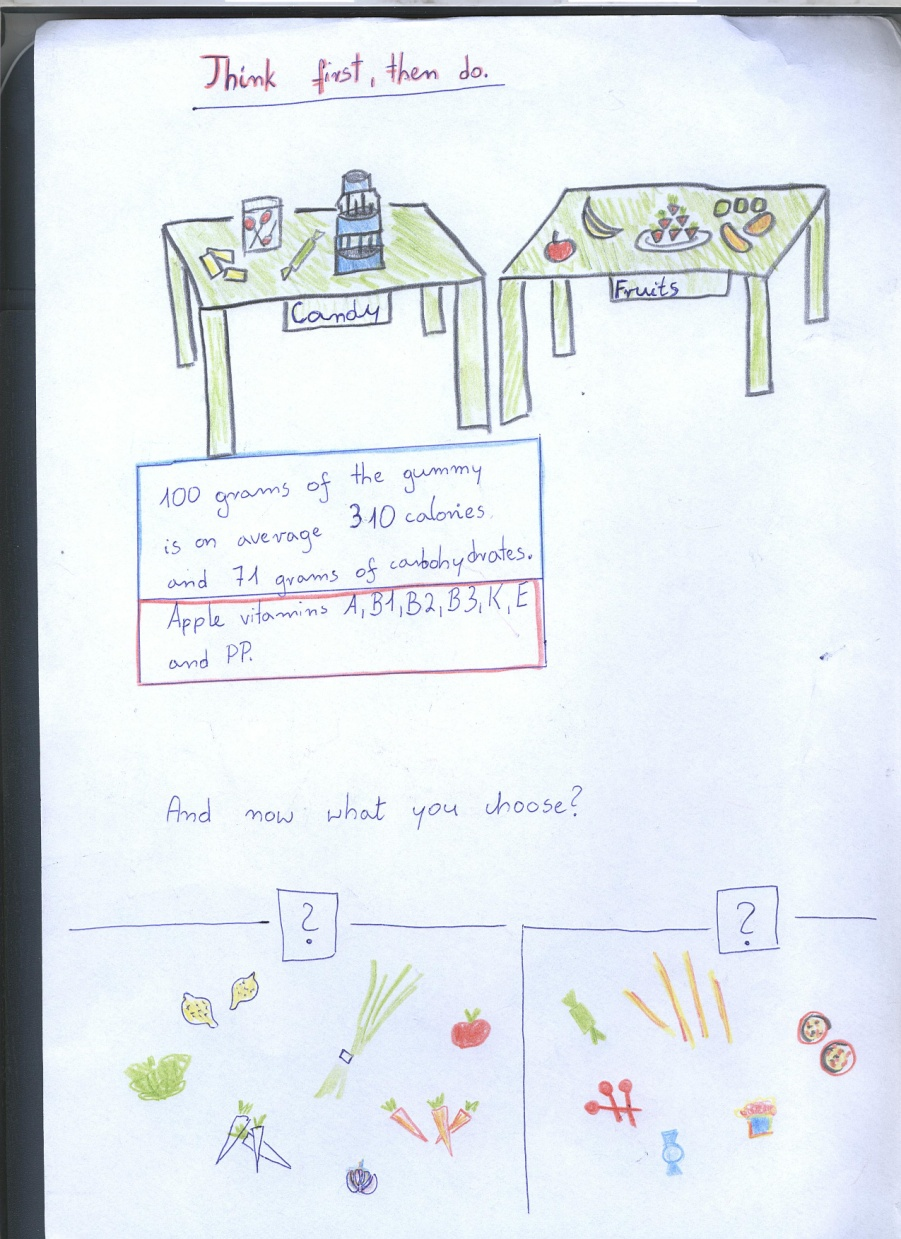 Think first, then do.
Candy
Fruits
100 grams of the gummy
is on average 310 calories
and 71 grams of carbohydrates.
Apple vitamins A, B1, B2, B3, K, E
and PP.
And now what you choose?
?
?